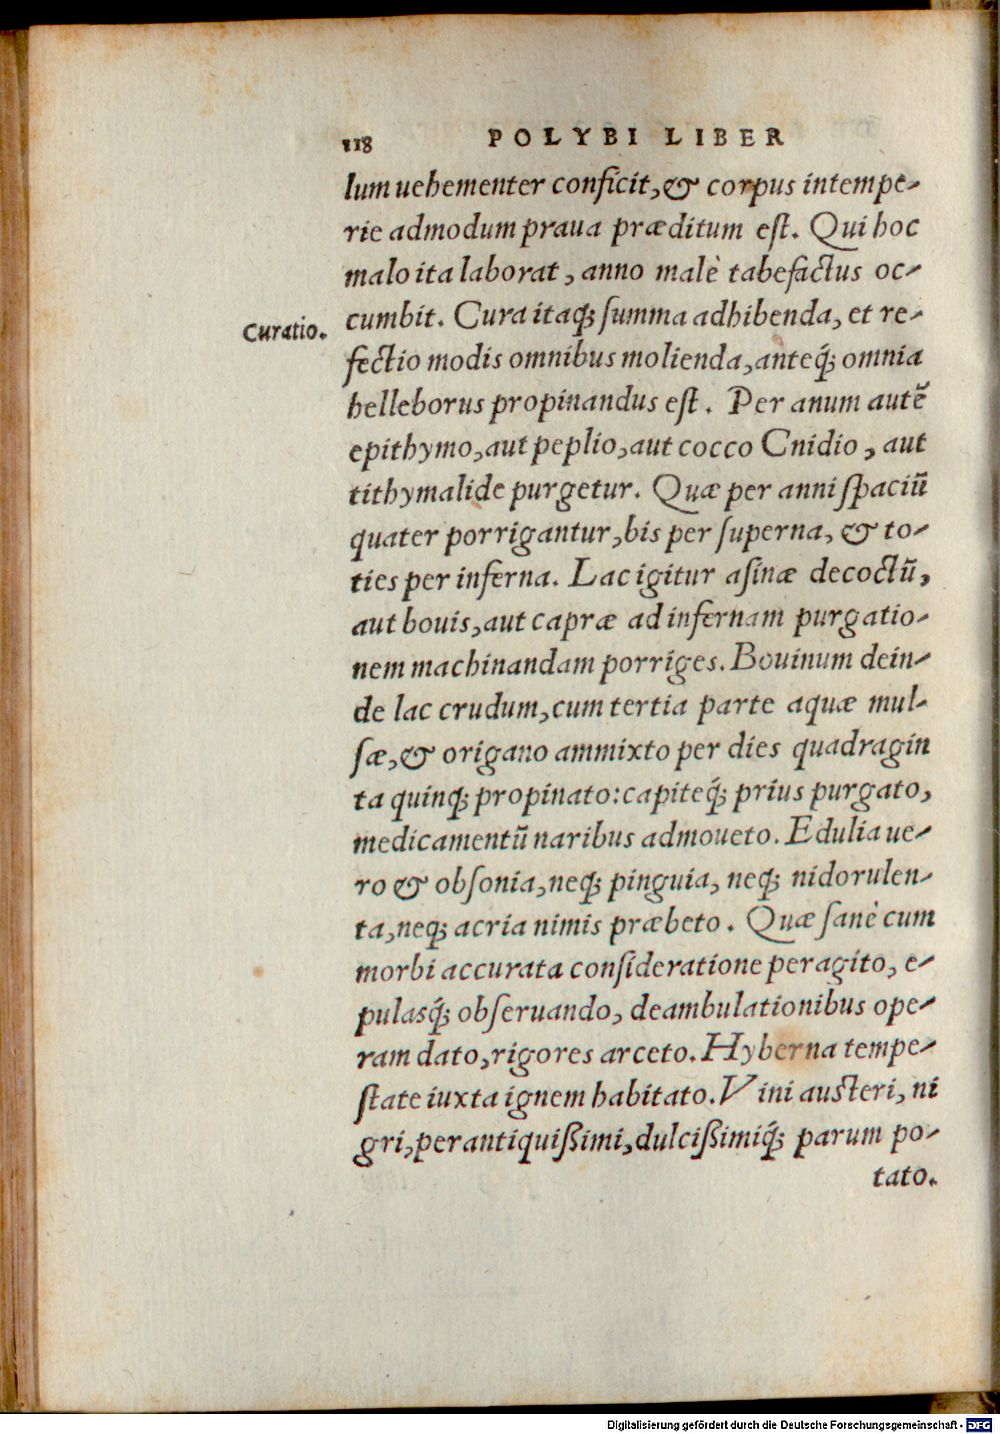 118 POLYBI LIBER
lum uehementer conficit, & corpus intempe-
rie admodum praua præditum est. Qui hoc
malo ita laborat, anno malè tabefactus oc-
Curatio.
cumbit. Cura itaq; summa adhibenda, et re-
fectio modis omnibus molienda, anteq́; omnia
helleborus propinandus est. Per anum autē
epithymo, aut peplio, aut cocco Cnidio, aut
tithymalide purgetur. Quæ per anni spaciū
quater porrigantur, bis per superna, & to-
ties per inferna. Lac igitur asinæ decoctū,
aut bouis, aut capræ ad infernam purgatio-
nem machinandam porriges. Bouinum dein-
de lac crudum, cum tertia parte aquæ mul-
sæ, & origano ammixto per dies quadragin
ta quinq; propinato: capiteq́; prius purgato,
medicamentū naribus admoueto. Edulia ue-
ro & obsonia, neq; pinguia, neq; nidorulen-
ta, neq; acria nimis præbeto. Quæ sanè cum
morbi accurata consideratione peragito, e-
pulasq́; obseruando, deambulationibus ope-
ram dato, rigores arceto. Hyberna tempe-
state iuxta ignem habitato. Vini austeri, ni
gri, perantiquißimi, dulcißimiq́; parum po-
tato.
Digitalisierung gefördert durch die Deutsche Forschungsgemeinschaft - DFG